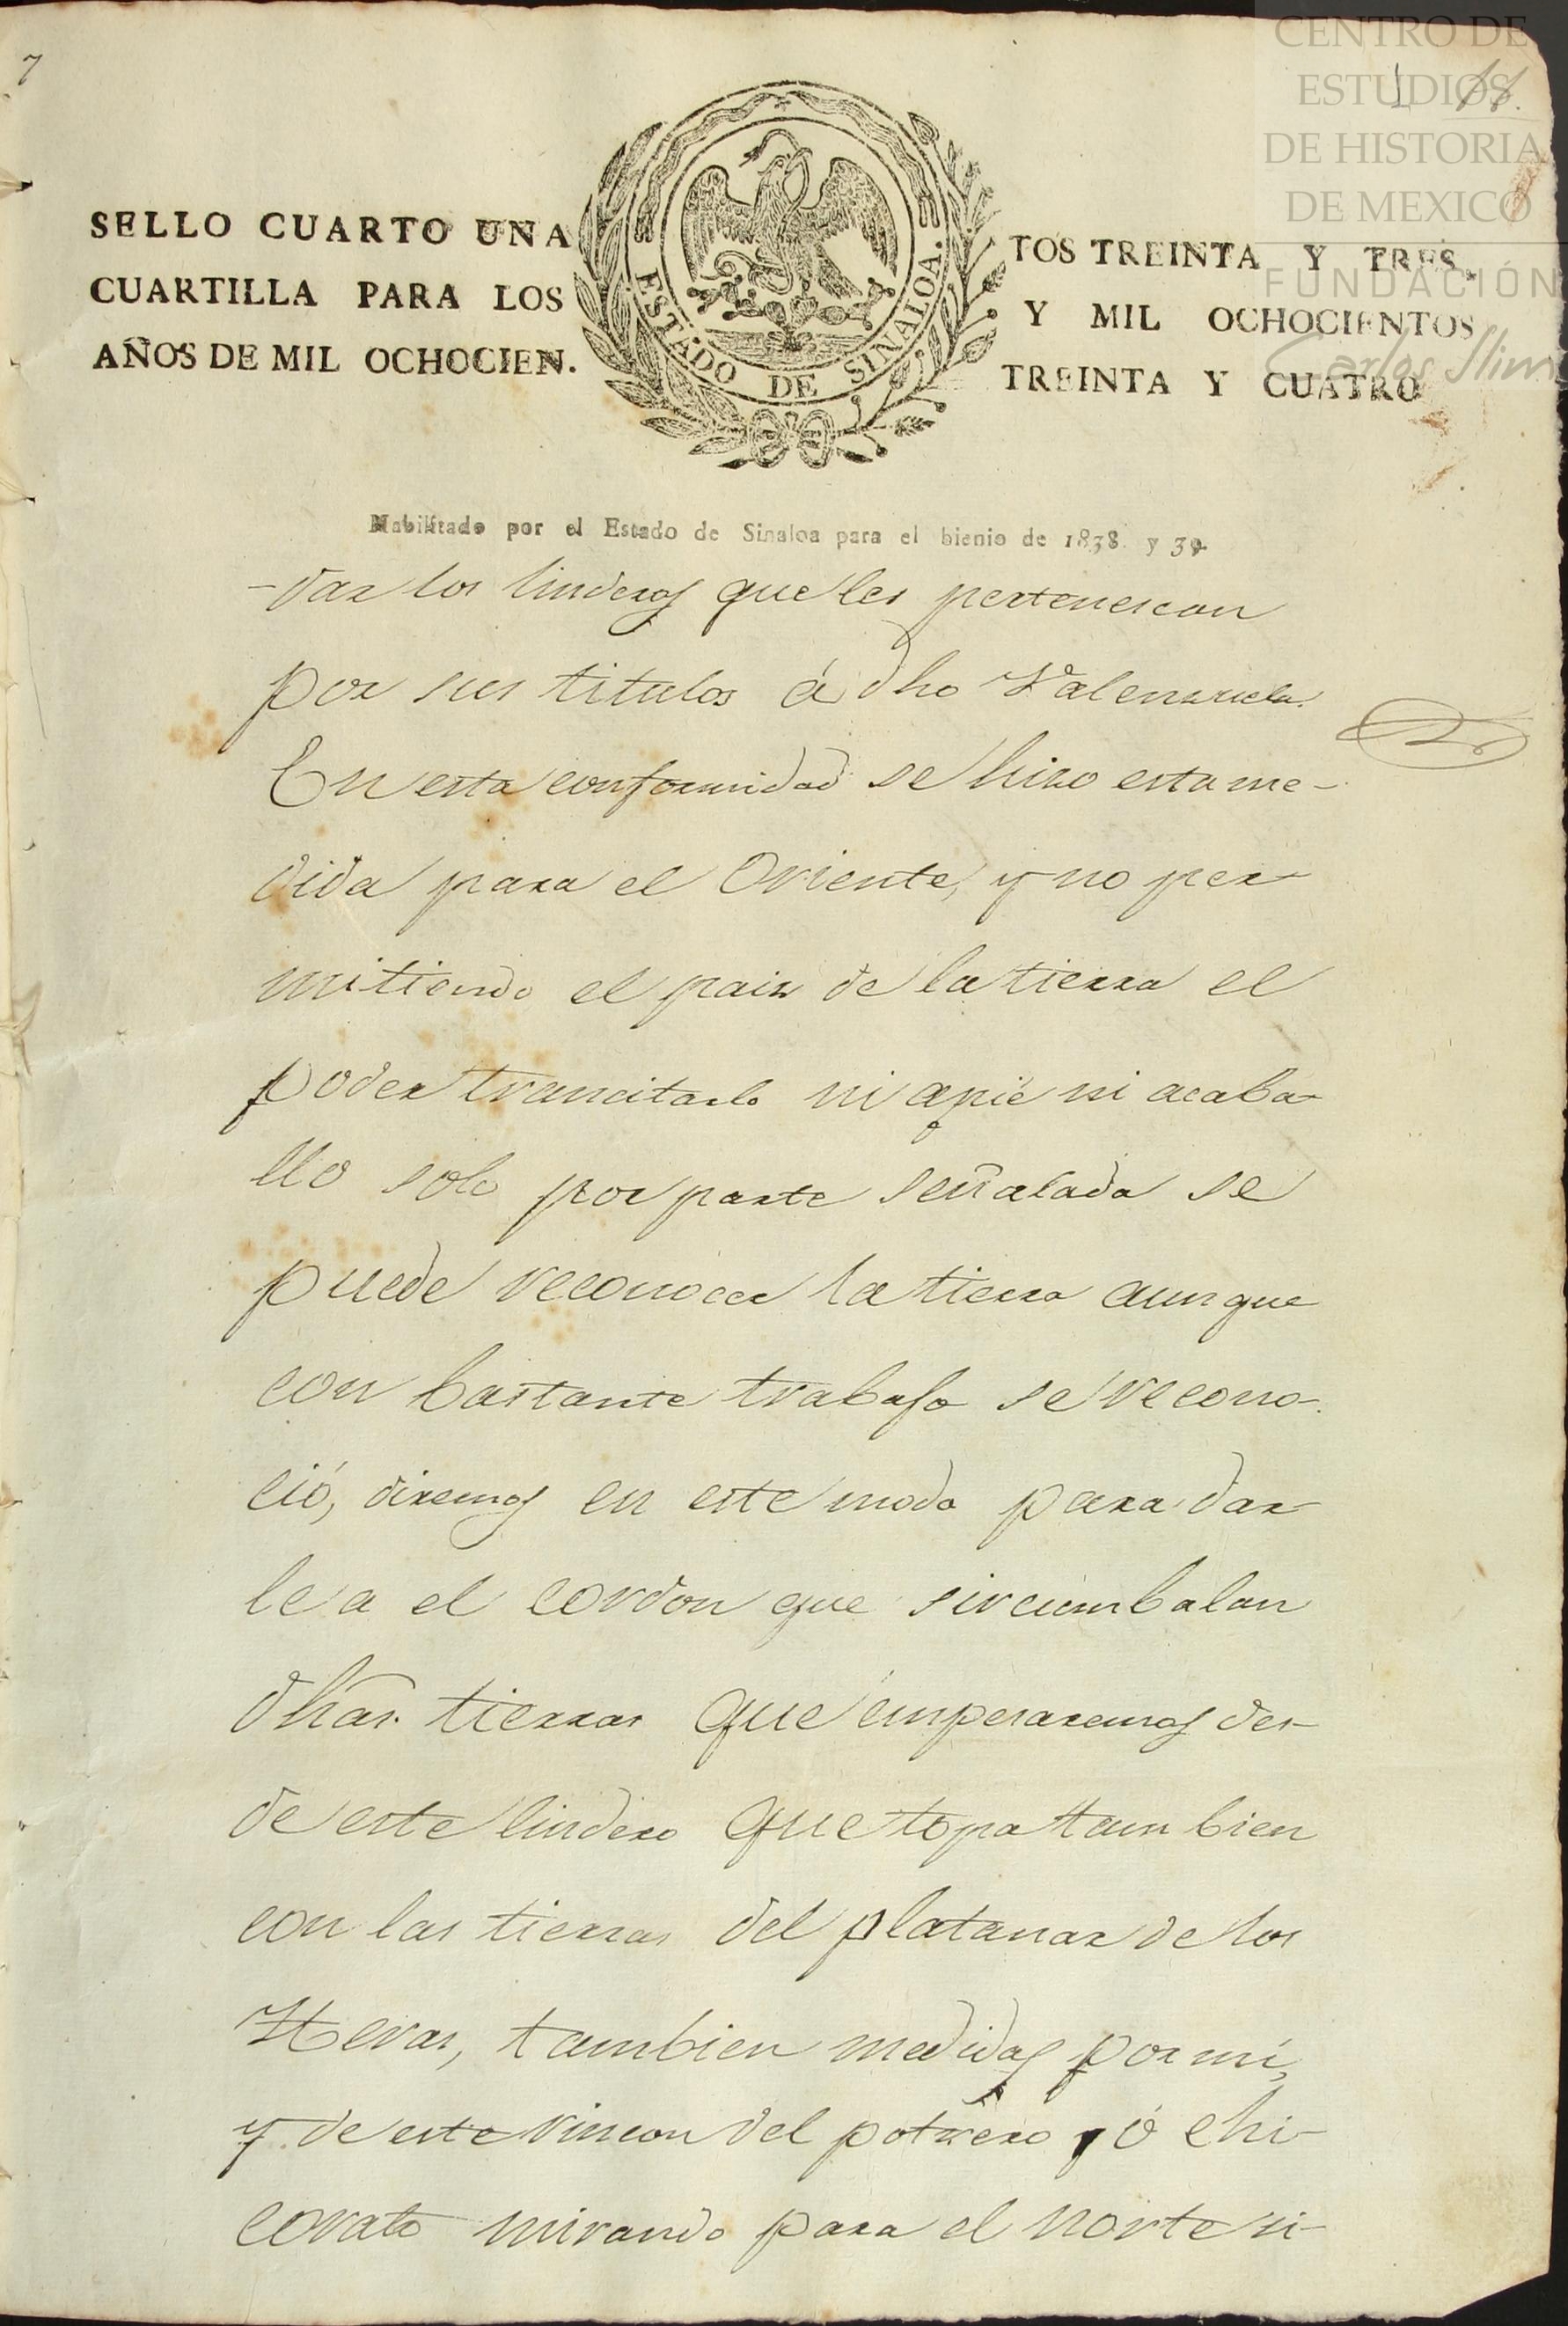 7
CENTRO DE
ESTUDIOS
DE HISTORIA
DE MEXICO
FUNDACIÓN
Carlos Slim
SELLO CUARTO UNA
CUARTILLA PARA LOS
AÑOS DE MIL OCHOCIEN.
ESTADO DE SINALOA.
TOS TREINTA Y TRES,
Y MIL OCHOCIENTOS
TREINTA Y CUATRO
Habilitado por el Estado de Sinaloa para el bienio de 1838 y 39
-dar los linderos que les pertenescan
por sus titulos á dho Valenzuela.
En esta conformidad se hizo esta me-
dida para el Oriente, y no per-
mitiendo el paiz de la tierra el
poder trancitarlo ni apié ni acaba-
llo solo por parte señalada se
puede reconocer la tierra aunque
con bastante trabajo se recono-
ció, diremos en este modo para dar-
le a el cordon que sircumbalan
dhas. tierras que empesaremos des-
de este lindero que topa tambien
con las tierras del platanar de los
Heras, tambien medidas por mi,
y de este rincon del potrero, ó chi-
corato mirando para el norte si-